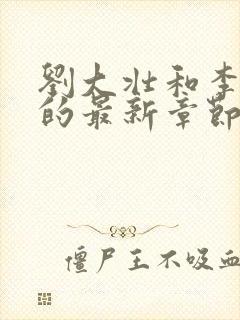 劉大壯和李
的最新章節
僵尸王不吸血